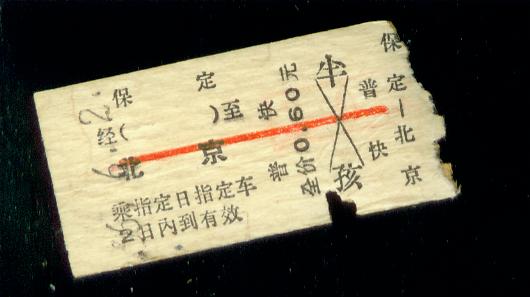 保定
经( )至
北京
乘指定日指定车
2日内到有效
普快
全价0.60元
半孩
普快
保定—北京